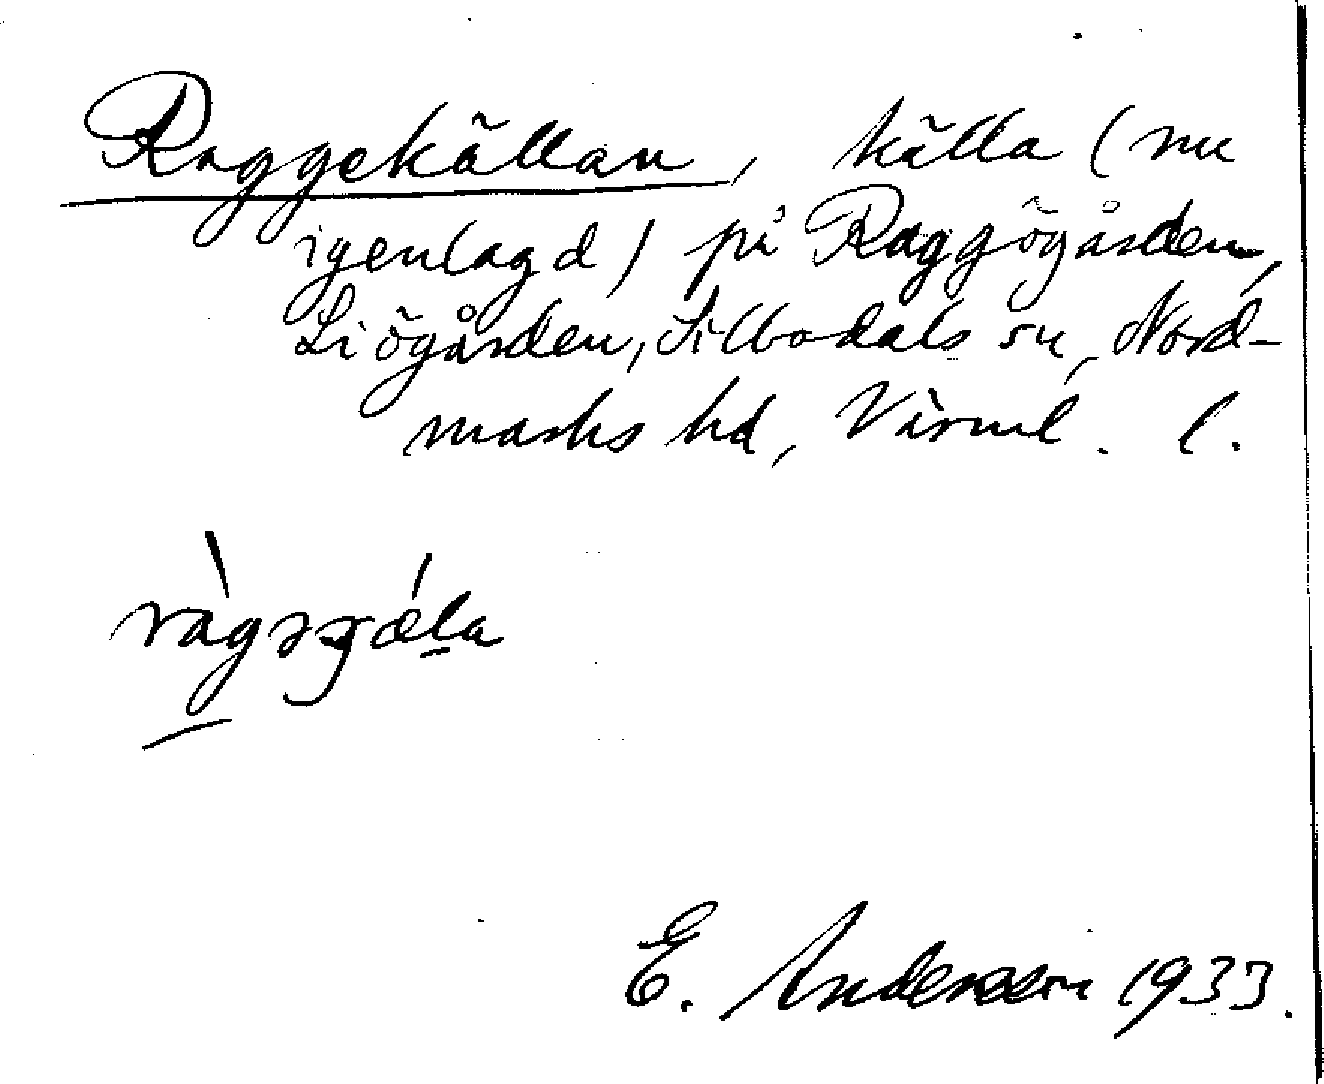 Raggekällan, källa (nu
igenlagd) på Raggögården,
Liögården, Silbodals sn, Nord-
marks hd, Värml. l.
E. Andersson 1933.